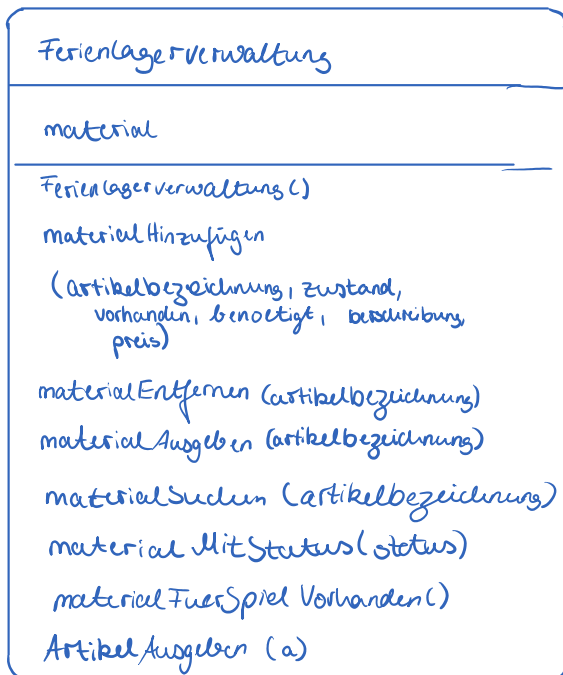 Ferienlagerverwaltung
material
Ferienlagerverwaltung()
materialHinzufügen
(artikelbezeichnung, zustand,
vorhanden, benoetigt, beschreibung,
preis)
materialEntfernen (artikelbezeichnung)
materialAusgeben (artikelbezeichnung)
materialSuchen (artikelbezeichnung)
materialMitStatus(status)
materialFuerSpielVorhanden()
ArtikelAusgeben (a)